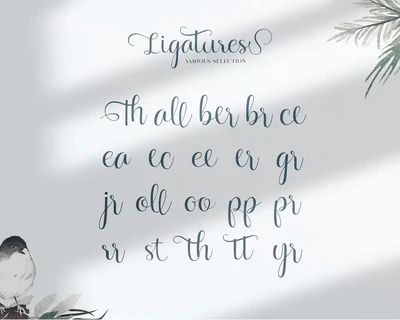 Ligatures
VARIOUS SELECTION
Th all ber br ce
ea ec ee er gr
jr oll oo pp pr
rr st th tt yr